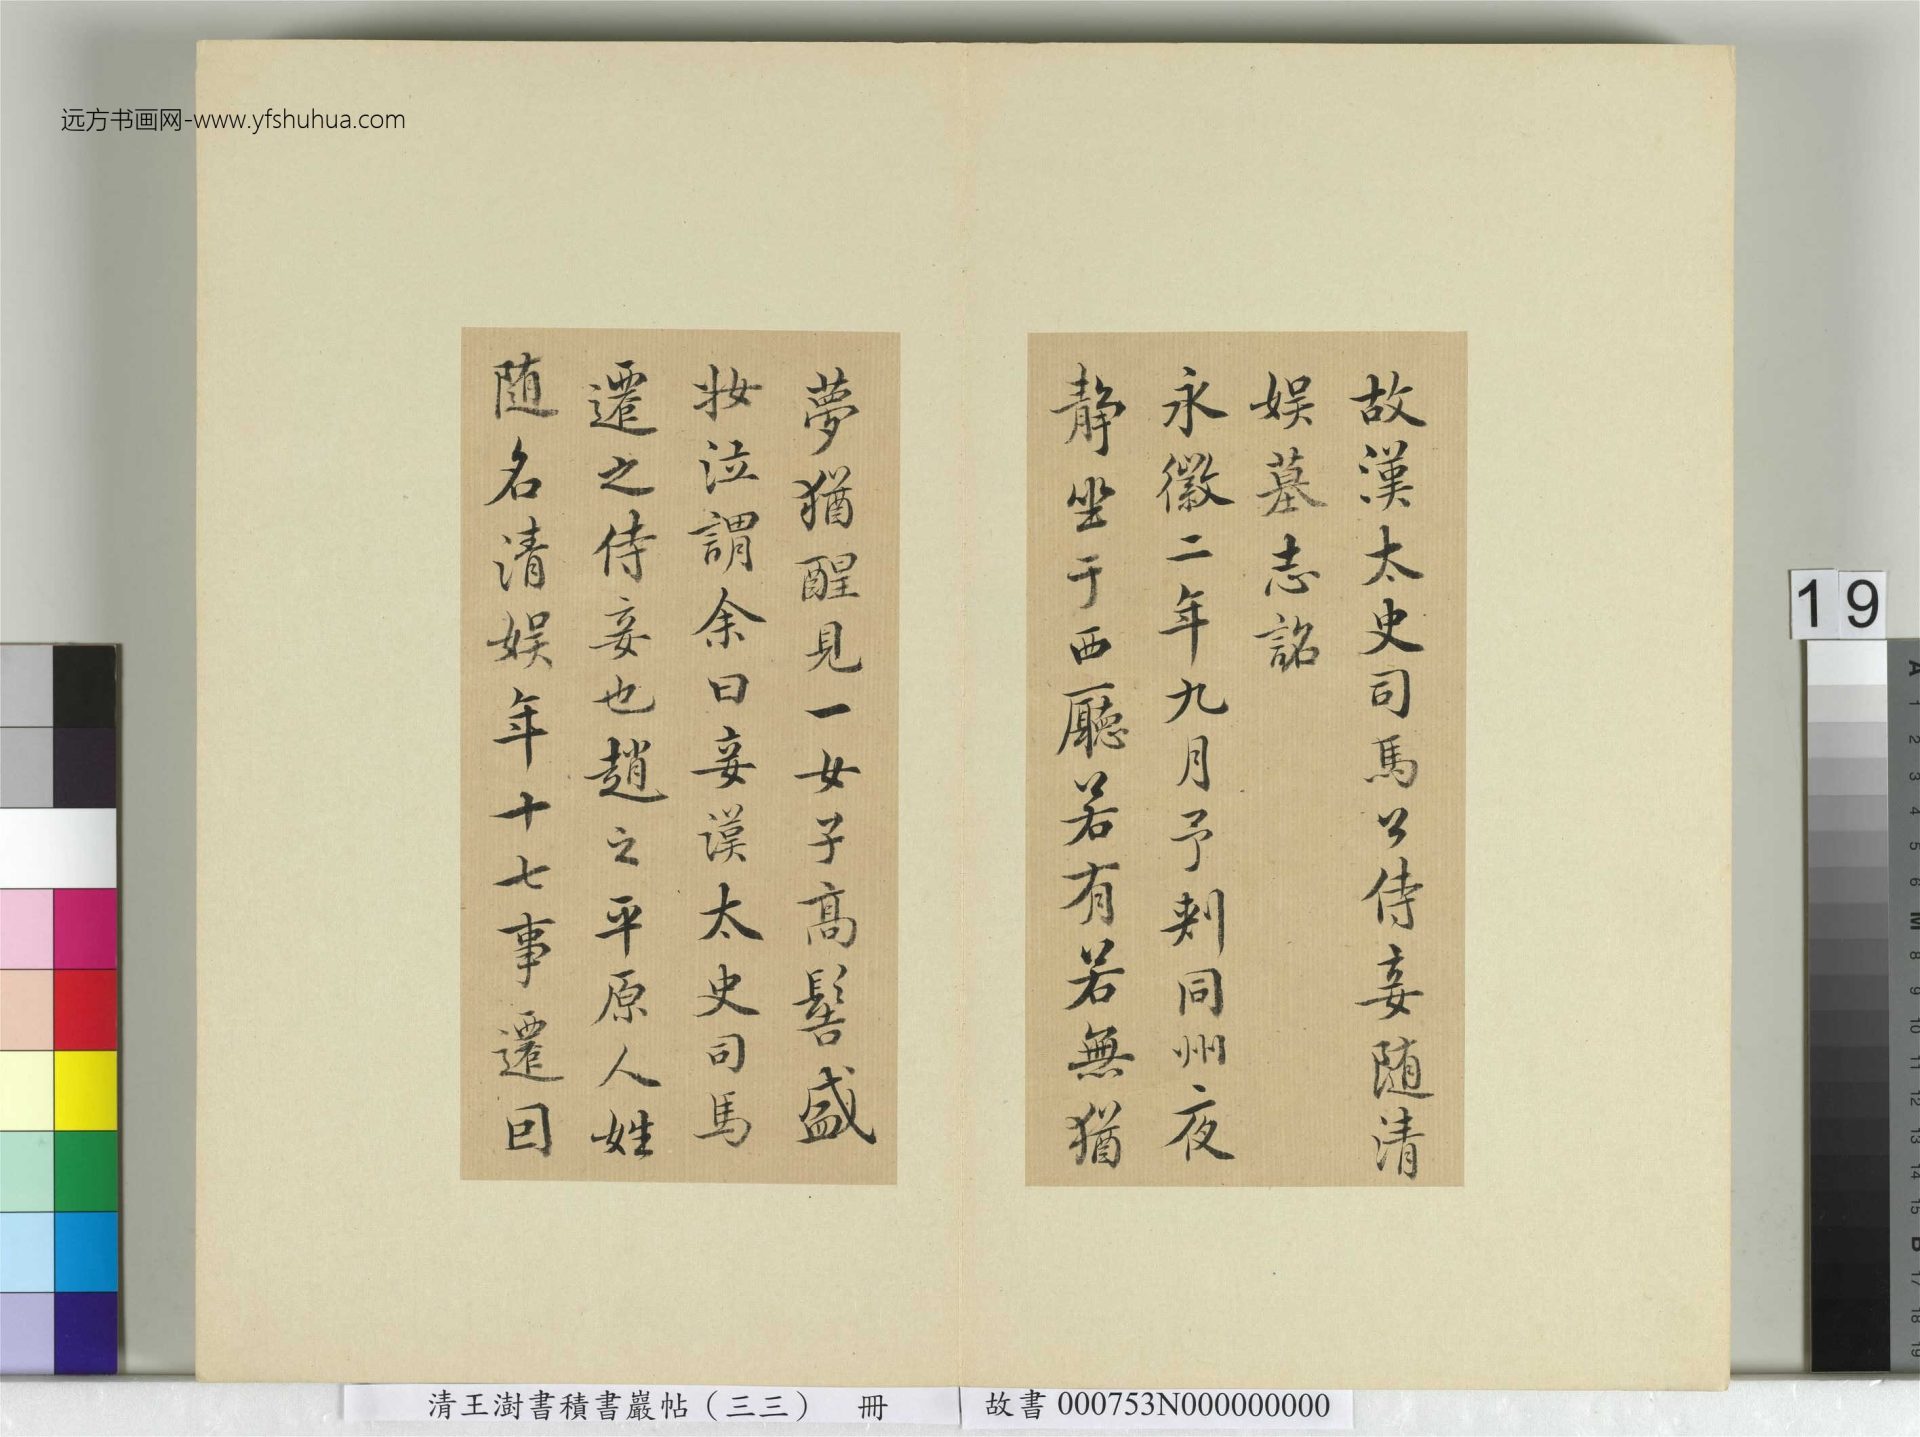 远方书画网-www.yfshuhua.com
故漢太史司馬公侍妾随清
娱墓志銘
永徽二年九月予刺同州夜
静坐于西廳若有若無猶
夢猶醒見一女子高髻盛
妝泣謂余曰妾漢太史司馬
遷之侍妾也趙之平原人姓
随名清娱年十七事遷因
19
清王澍書積書巖帖（三三） 冊
故書 000753N000000000